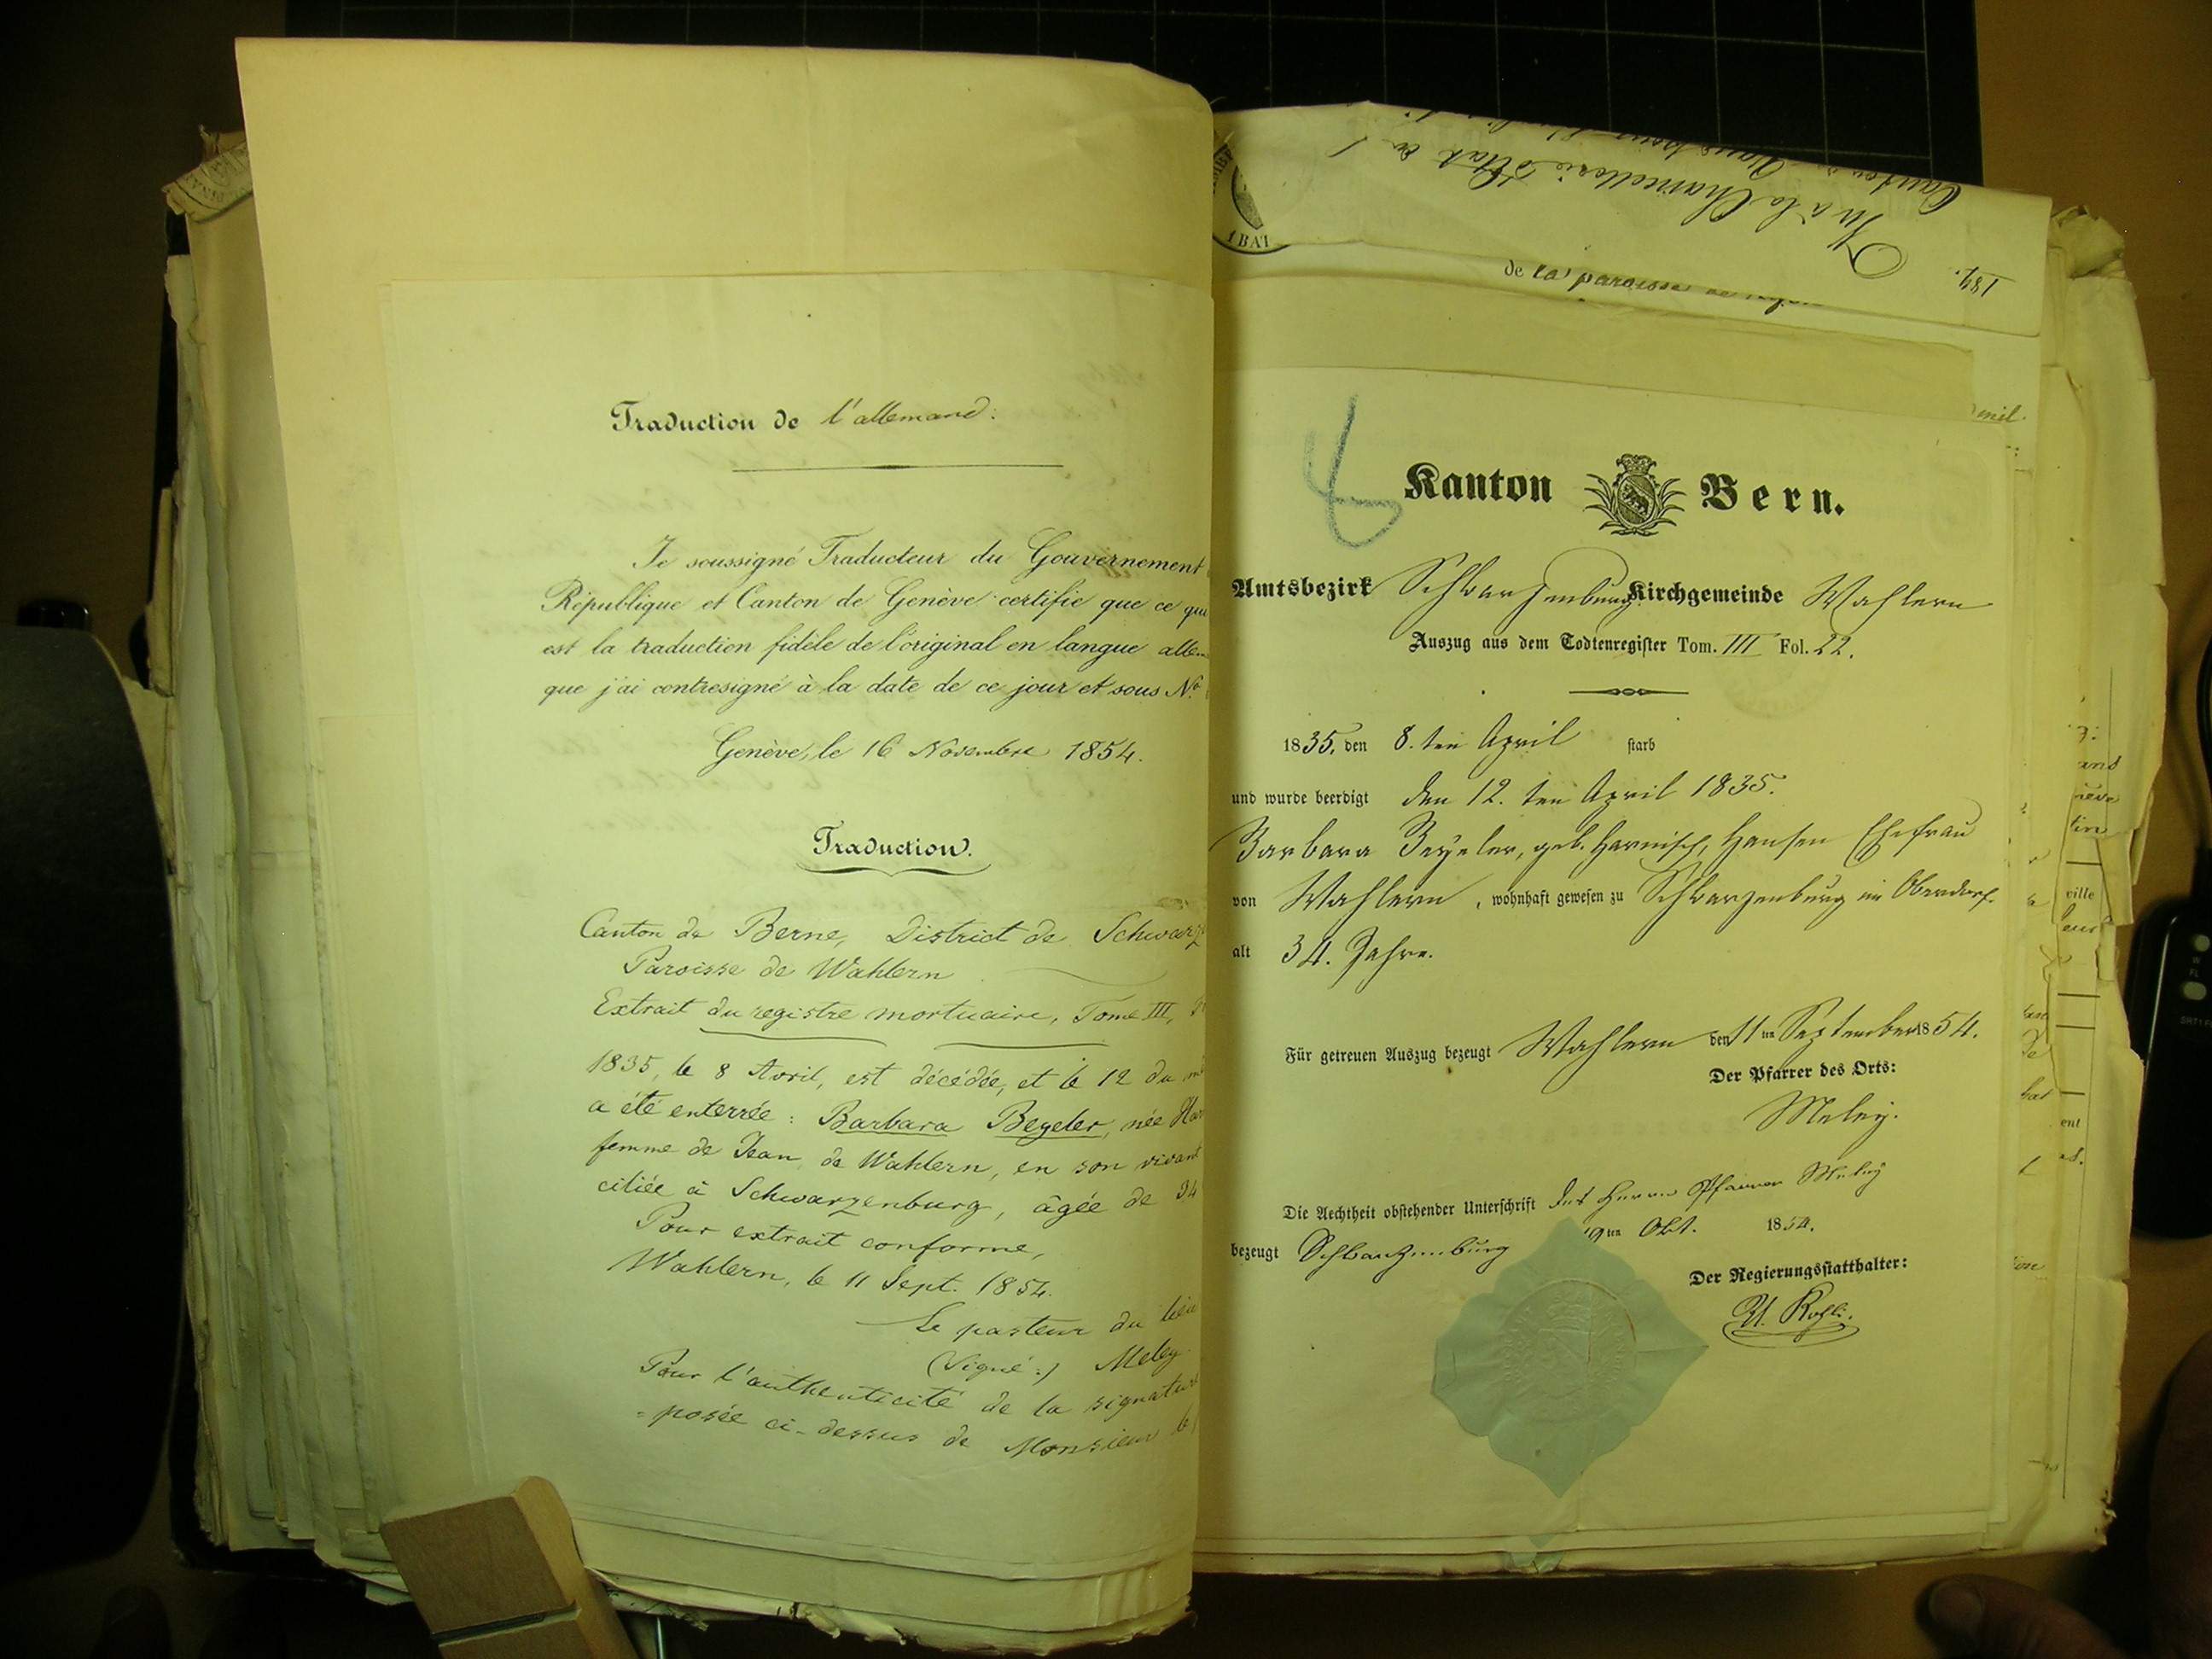 Traduction de l'allemand:
Je soussigné Traducteur du Gouvernement
République et Canton de Genève certifie que ce qui
est la traduction fidèle de l'original en langue allem
que j'ai contresigné à la date de ce jour et sous No
Genève, le 16 Novembre 1854.
Traduction.
Canton de Berne, District de Schwarz
Paroisse de Wahlern
Extrait du registre mortuaire, Tome III,
1835, le 8 Avril, est décédée, et le 12 du
a été enterrée: Barbara Beyeler, née Har
femme de Jean, de Wahlern, en son vivant
ciliée à Schwarzenburg, âgée de 34
Pour extrait conforme,
Wahlern, le 11 Sept. 1854.
Le pasteur du lieu
(Signé:) Meley
Pour l'authenticité de la signature
posée ci-dessus de Monsieur le
1 BAT
la Chancellerie d'Etat
Canton de
184
de la paroisse de
Kanton Bern.
Amtsbezirk Schwarzenburg Kirchgemeinde Wahlern
Auszug aus dem Todtenregister Tom. III Fol. 22.
1835. den 8.ten April starb
und wurde beerdigt den 12.ten April 1835.
Barbara Beyeler, geb. Harnisch, Hansen Ehefrau
von Wahlern, wohnhaft gewesen zu Schwarzenburg im Oberdorf.
alt 34. Jahre.
Für getreuen Auszug bezeugt Wahlern den 11ten September 1854.
Der Pfarrer des Orts:
Meley.
Die Aechtheit obstehender Unterschrift des Herrn Pfarrer Meley
bezeugt Schwarzenburg 19ten Okt. 1854.
Der Regierungsstatthalter:
U. Kohli.
ville